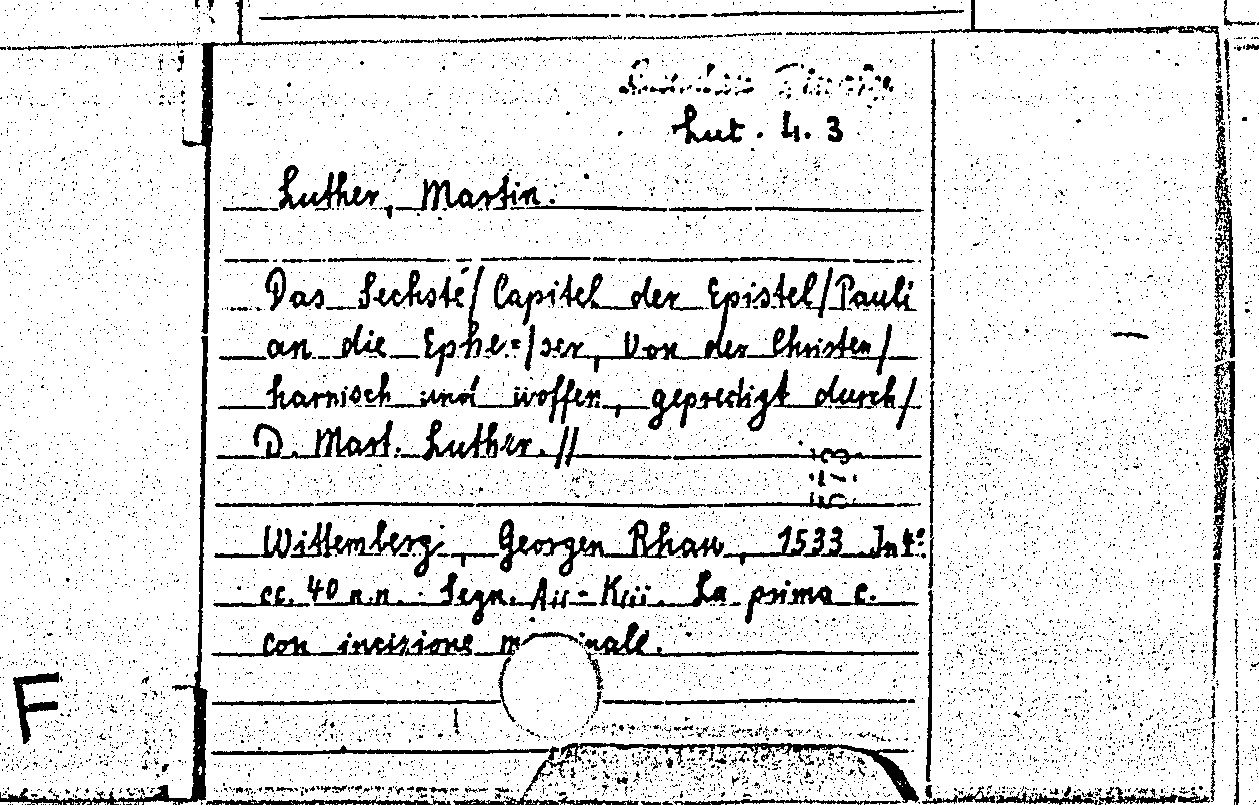 Lut. 4. 3
Luther, Martin.
Das Sechste/Capitel der Epistel/Pauli
an die Ephe=/ser, Von der Christen/
harnisch und woffen, gepredigt durch/
D. Mart. Luther.//
513
Wittemberg, Georgen Rhau, 1533 In 4º
cc. 40 n.n. Segn. Aii-Kiii. La prima c.
con incizione
F